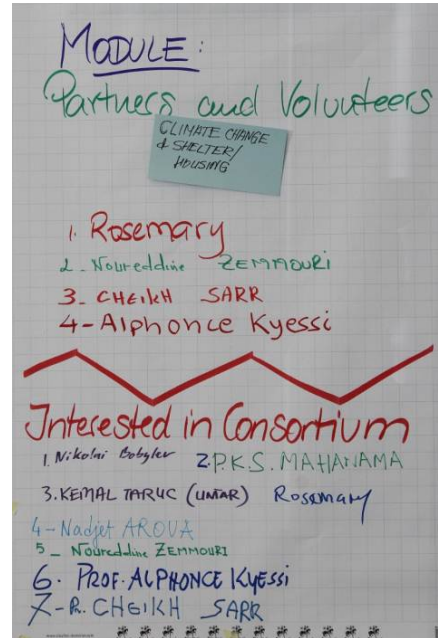 MODULE:
Partners and Volunteers
CLIMATE CHANGE
& SHELTER/
HOUSING
1. Rosemary
2_ Noureddine ZEMMOURI
3_ CHEIKH SARR
4-Alphonce Kyessi
Interested in Consortium
1. Nikolai Bobylev 2. P.K.S. MAHANAMA
3. KEMAL TARUC (UMAR) Rosemary
4-Nadjet AROUA
5_ Noureddine ZEMMOURI
6. PROF. ALPHONCE KYESSI
7-P. CHEIKH SARR